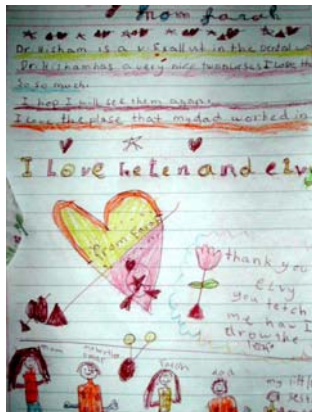 from farah
Dr. Hisham is a v.i.s allut in the dental
Dr. Hisham has a very nice two nurses I love th
so so much.
I hop I will see them agan.
I love the plase that my dad worked in
I Love helen and elvy
from Farah
thank you
Elvy
you tetch
me haw I
drow the
mom
farah
dad
my litt